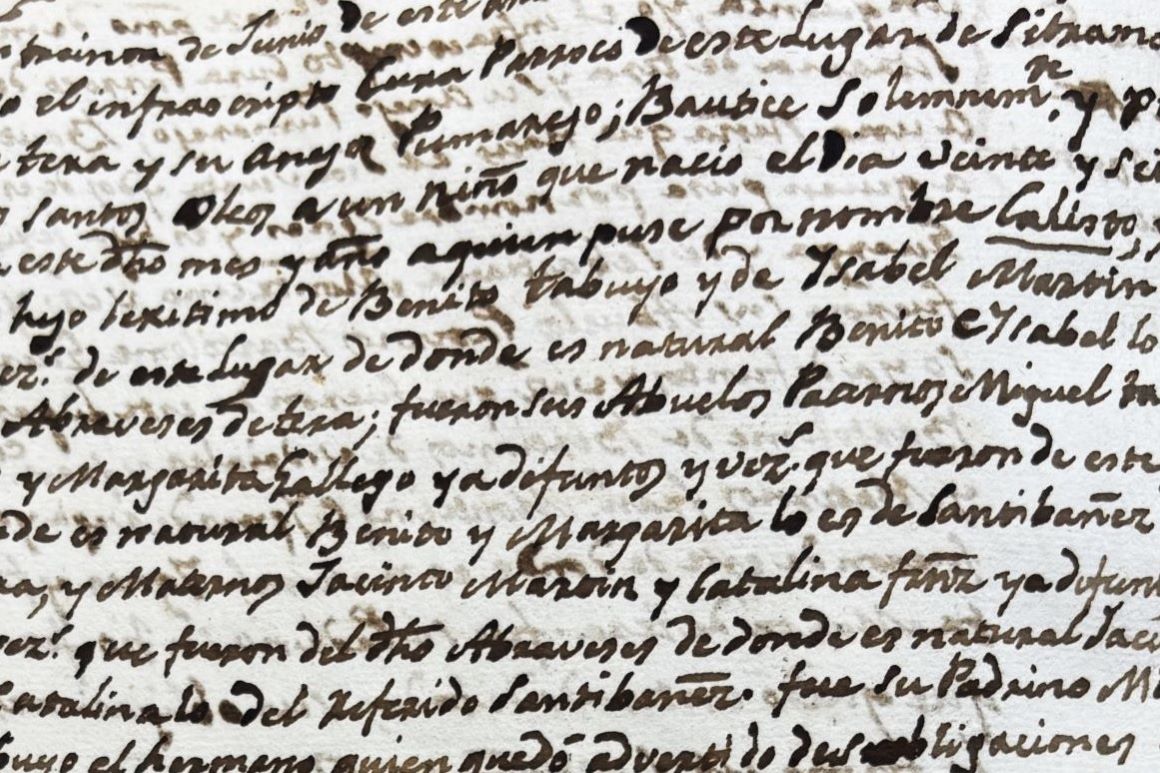 treinta de Junio de este
el infraescripto Cura Parroco de este Lugar de Sitrama
tera y su anejo Pumarejo; Bautice Solemnemte, y p
santos oleos a un niño que nacio el Dia veinte y sei
este dho mes y año a quien puse por nombre Calisto,
hijo lexitimo de Benito tabuyo y de Ysabel Martin
vezs. de este Lugar de donde es natural Benito e Ysabel lo
Abraveses de tera; fueron sus Abuelos Paternos Miguel ta
y Margarita Gallego ya difuntos y vezs. que fueron de este
de es natural Benito y Margarita lo es de Santibañez
ra, y Maternos Jacinto Martin y Catalina frnz ya difun
vezs. que fueron del dho Abraveses de donde es natural Jaci
Catalina lo del referido Santibañez. fue su Padrino Mi
buyo el hermano quien quedó advertido de sus obligaciones